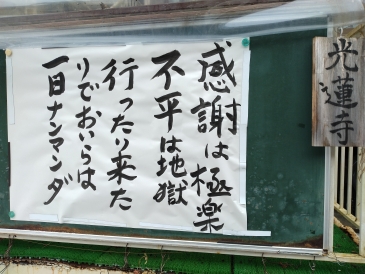 感謝は極楽
不平は地獄
行ったり来た
りでおいらは
一日ナンマンダ
光蓮寺